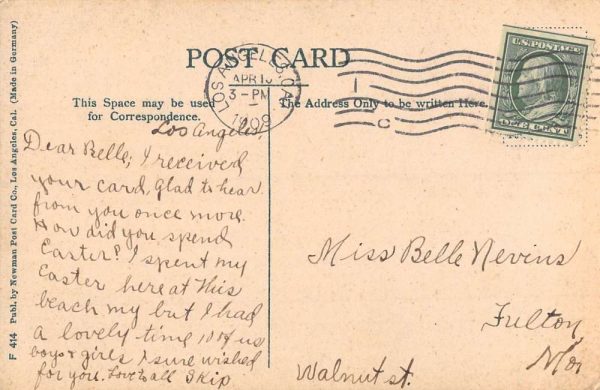 POST CARD
LOS ANGELES, CAL.
APR 13
3 - PM
1909
1
C
U.S. POSTAGE
ONE CENT
This Space may be used
for Correspondence.
The Address Only to be written Here.
F 414 Publ. by Newman Post Card Co., Los Angeles, Cal. (Made in Germany)
Los Angeles
Dear Belle; I received
your card, Glad to hear
from you once more.
How did you spend
Easter? I spent my
Easter here at this
beach my but I had
a lovely time 10 of us
boys & girls I sure wished
for you. Love to all Skip
Miss Belle Nevins
Fulton
Mo
Walnut st.